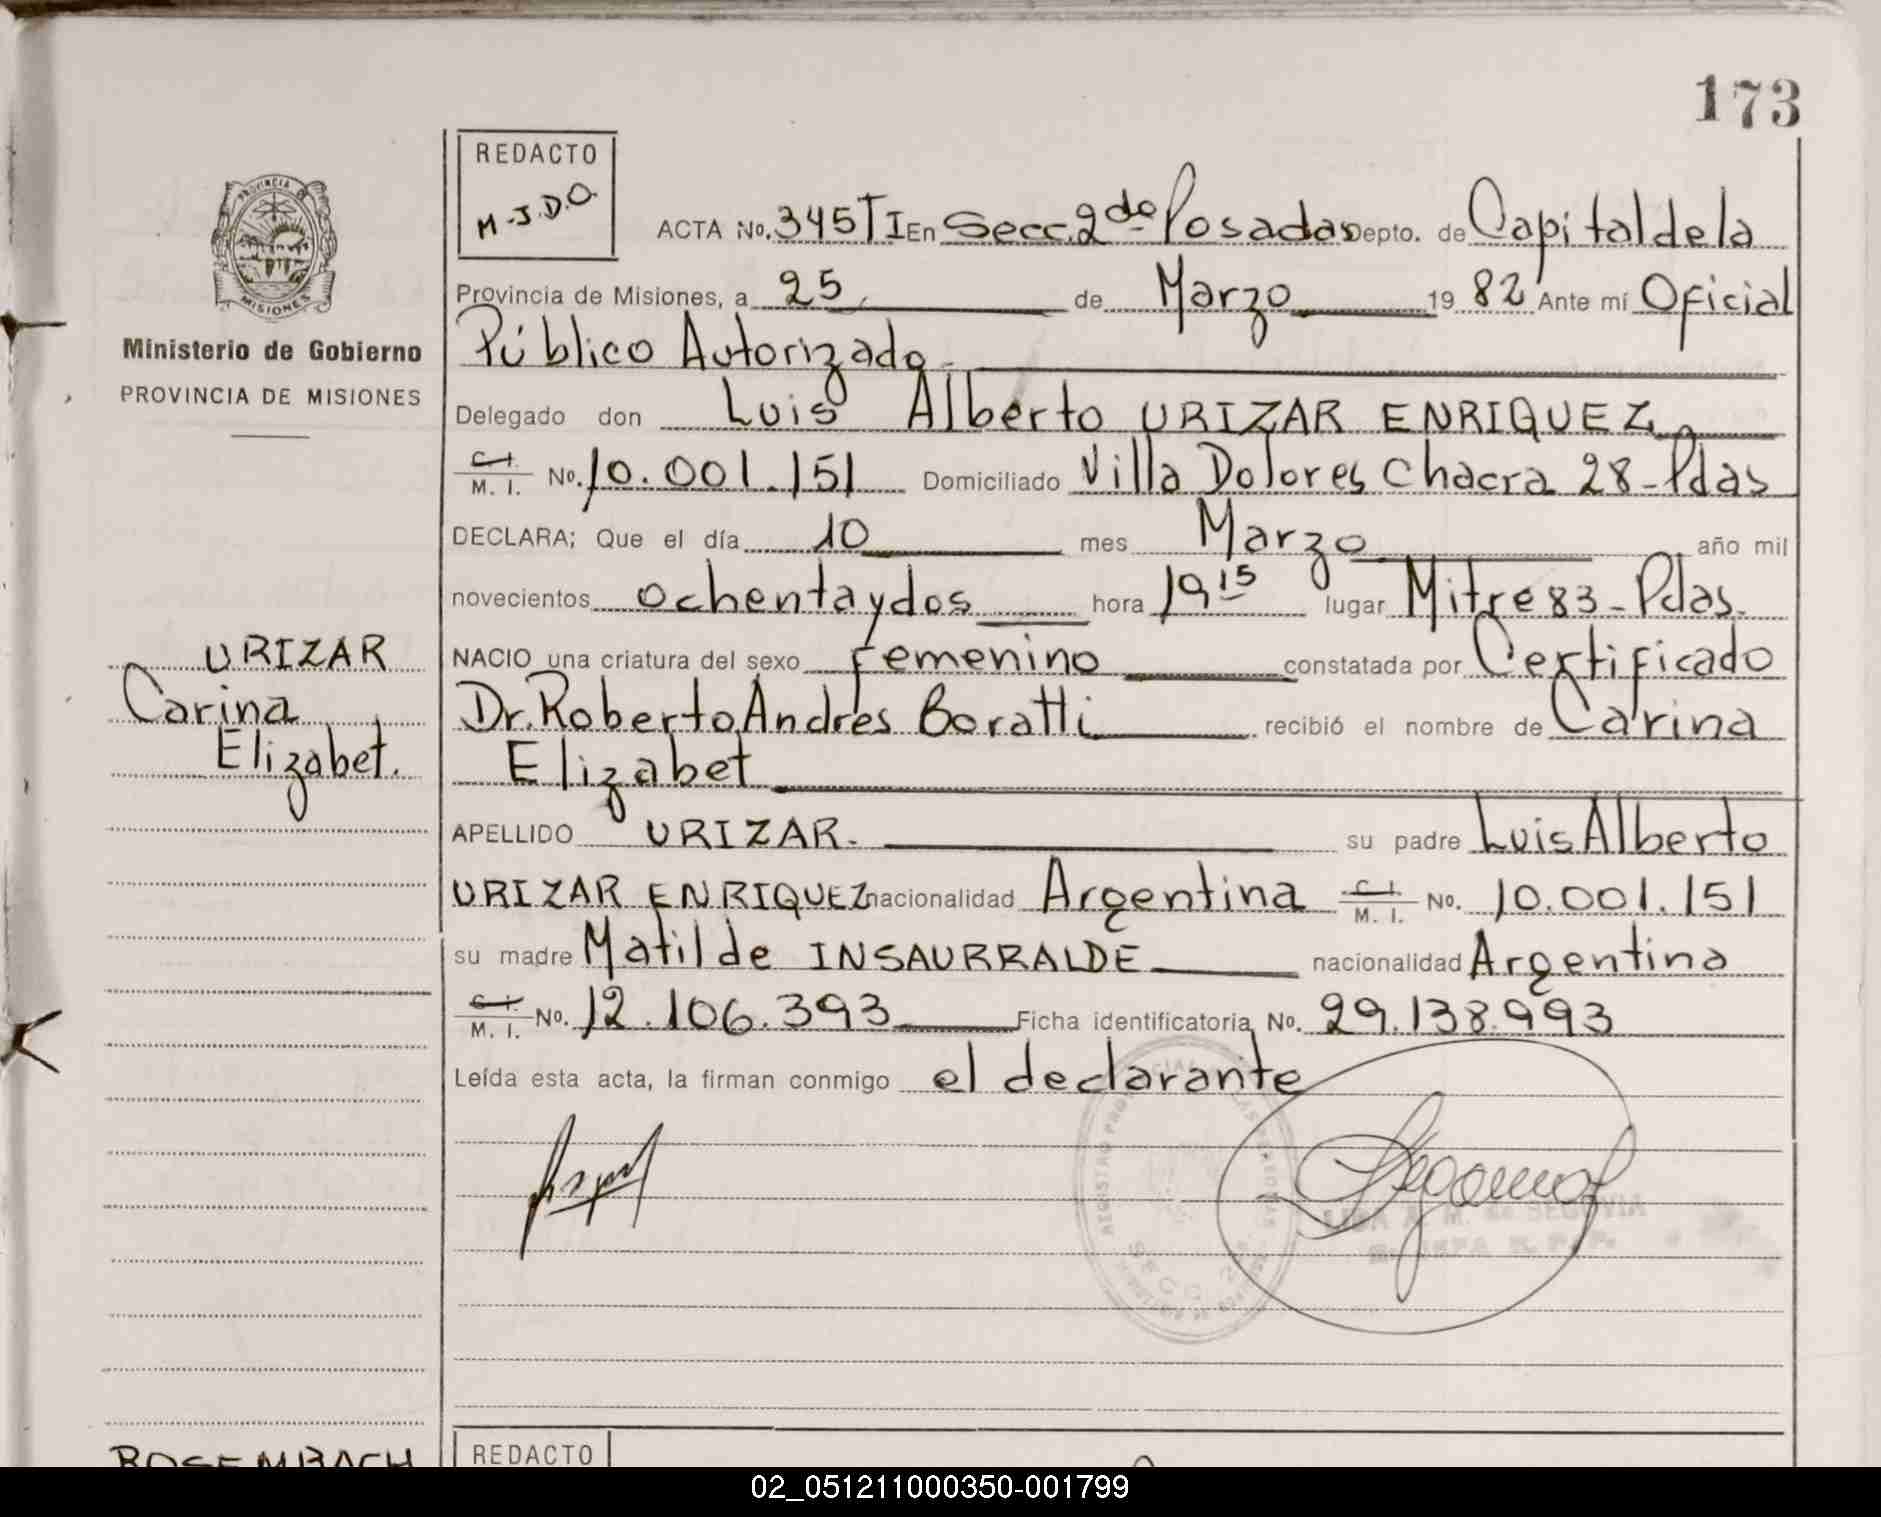 173
REDACTO
M.J.D.O.
PROVINCIA DE
MISIONES
Ministerio de Gobierno
PROVINCIA DE MISIONES
URIZAR
Carina
Elizabet.
ACTA No. 345 T I En Secc. 2da Posadas Depto. de Capital de la
Provincia de Misiones, a 25 de Marzo 1982 Ante mí Oficial
Público Autorizado
Delegado don Luis Alberto URIZAR ENRIQUEZ
C. I. / M. I. No. 10.001.151 Domiciliado Villa Dolores Chacra 28 - Pdas
DECLARA; Que el día 10 mes Marzo año mil
novecientos ochenta y dos hora 19 15 lugar Mitre 83 - Pdas.
NACIO una criatura del sexo femenino constatada por Certificado
Dr. Roberto Andres Boratti recibió el nombre de Carina
Elizabet
APELLIDO URIZAR. su padre Luis Alberto
URIZAR ENRIQUEZ nacionalidad Argentina C. I. / M. I. No. 10.001.151
su madre Matilde INSAURRALDE nacionalidad Argentina
C. I. / M. I. No. 12.106.393 Ficha identificatoria No. 29.138.993
Leída esta acta, la firman conmigo el declarante
REGISTRO PROVINCIAL DE LAS PERSONAS
A. M. de SEGOVIA
ROSEMBACH
REDACTO
02_051211000350-001799